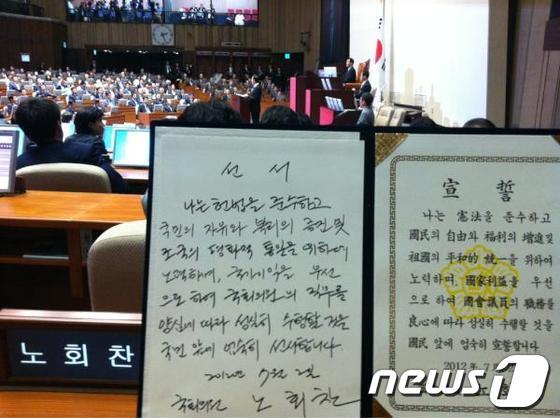 노 회 찬
선 서
나는 헌법을 준수하고
국민의 자유와 복리의 증진 및
조국의 평화적 통일을 위하여
노력하며, 국가이익을 우선
으로 하여 국회의원의 직무를
양심에 따라 성실히 수행할 것을
국민 앞에 엄숙히 선서합니다.
2012년 7월 2일
국회의원 노 회 찬
宣 誓
나는 憲法을 준수하고
國民의 自由와 福利의 增進 및
祖國의 平和的 統一을 위하여
노력하며, 國家利益을 우선
으로 하여 國會議員의 職務를
良心에 따라 성실히 수행할 것을
國民 앞에 엄숙히 宣誓합니다.
2012年 7
news1